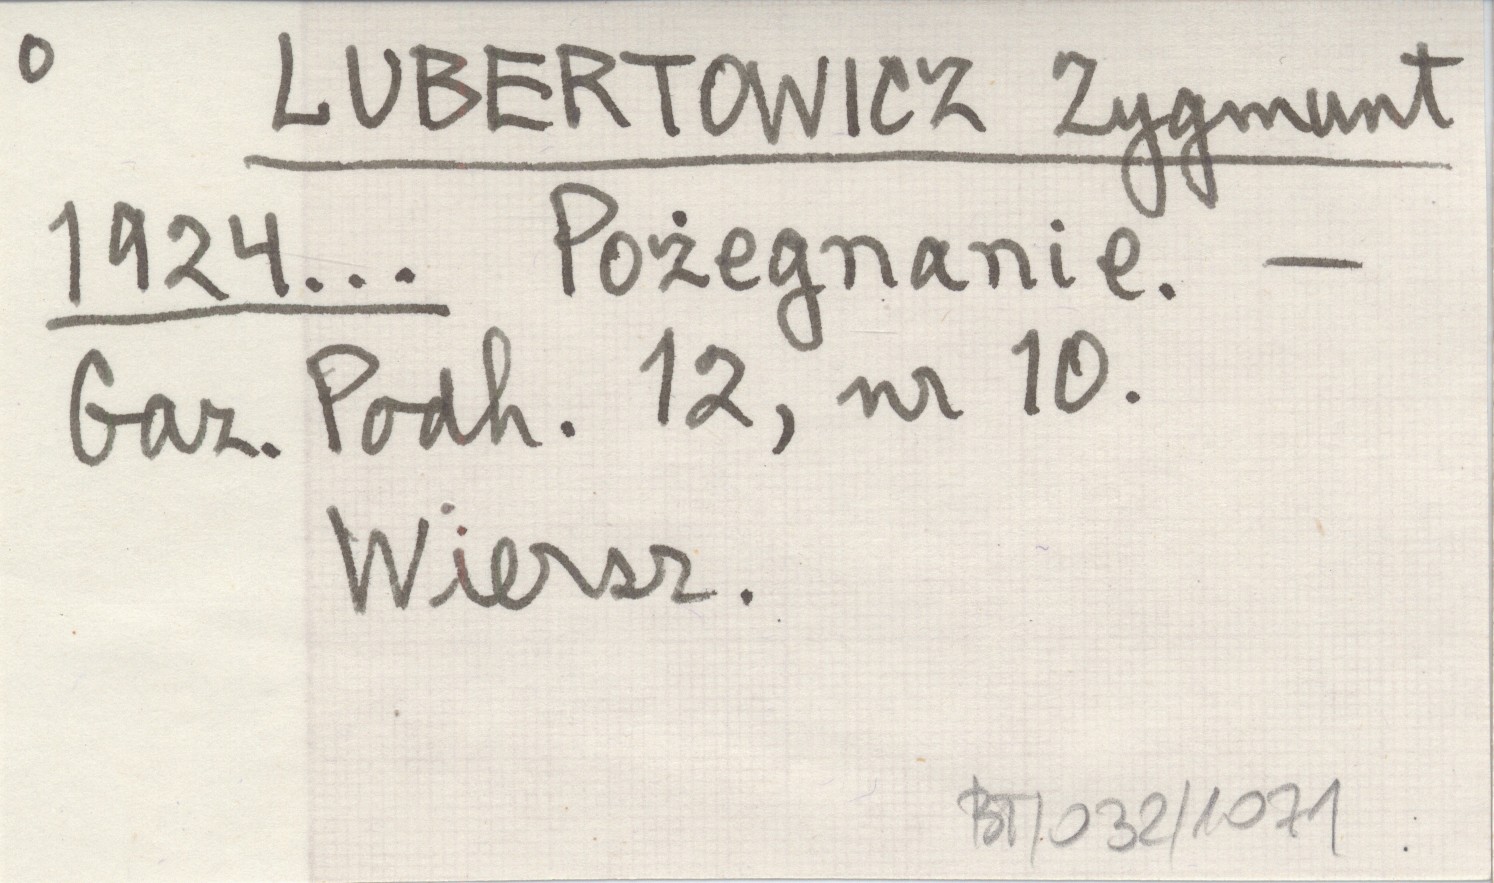 o LUBERTOWICZ Zygmunt
1924... Pożegnanie. —
Gaz. Podh. 12, nr 10.
Wiersz.
BT/032/1071